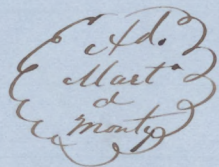 Ad.
Mart
d
Monty